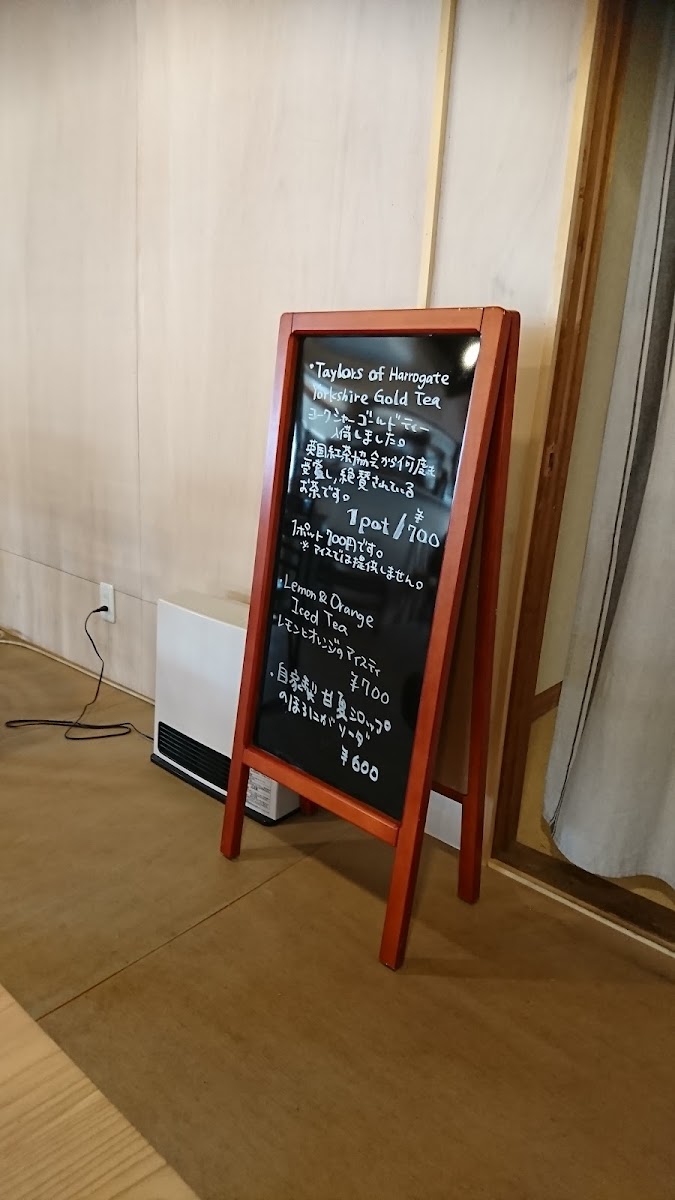 ・Taylors of Harrogate
Yorkshire Gold Tea
ヨークシャーゴールドティー
入荷しました。
英国紅茶協会から何度も
受賞し、絶賛されている
お茶です。
1pot/¥700
1ポット700円です。
※アイスでは提供しません。
・Lemon & Orange
Iced Tea
・レモンとオレンジのアイスティ
¥700
・自家製甘夏シロップ
のほろにがソーダ
¥600